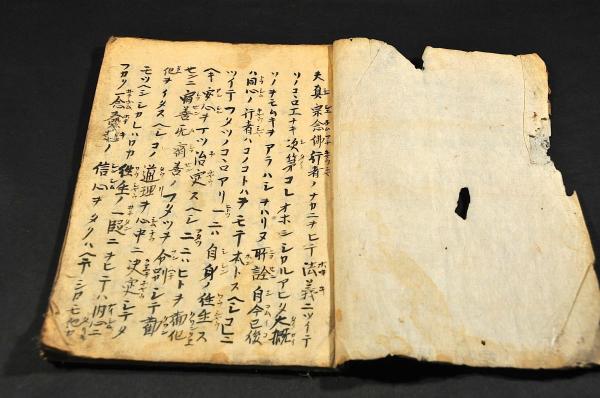 夫真宗念佛行者ノナカニヲヒテ法義ニツイテ
ソノコヽロエナキ次第コレオホシシカルアヒタ大概
ソノヲモムキヲアラハシヲハリヌ所詮自今已後
ハ同心ノ行者ハコノコトハヲモテ本トスヘシコレニ
ツイテフタツノコヽロアリ一ニハ自身ノ往生ス
ヘキ安心ヲマツ治定スヘシ二ニハヒトヲ勧化
センニ宿善无宿善ノフタツヲ分別シテ勧
化ヲイタスヘシコノ道理ヲ心中ニ決定シテタ
モツヘシシカレハワカ往生ノ一段ニヲヒテハ内心ニ
フカク一念發起ノ信心ヲタクハヘテシカモ他力